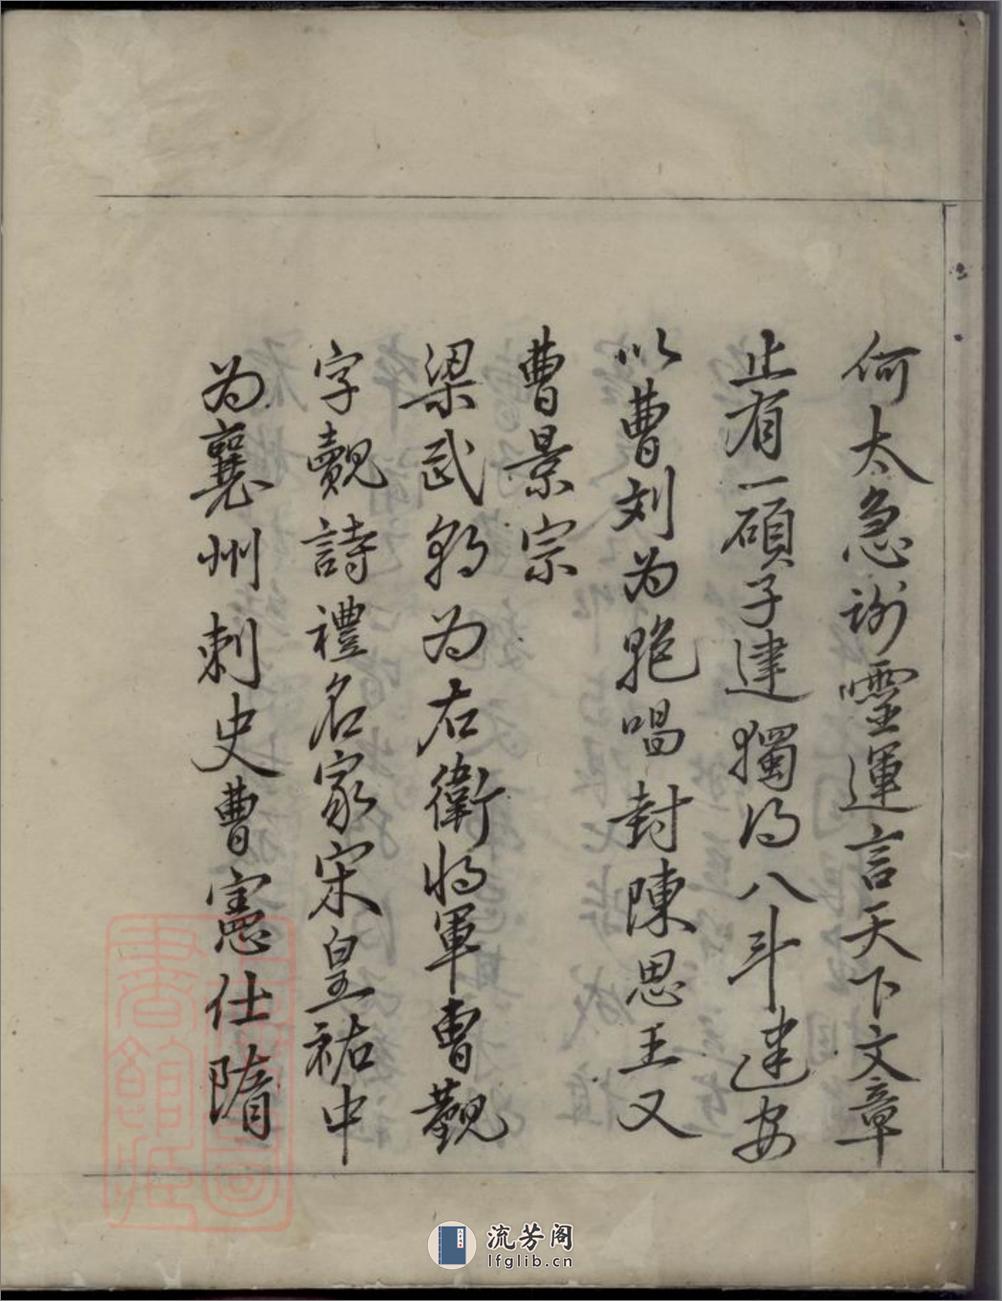 何太急謝靈運言天下文章
止有一碩子建獨得八斗建安
以曹刘为絶唱封陳思王又
曹景宗
梁武朝为右衛将軍曹觀
字覿詩禮名家宋皇祐中
为襄州刺史曹憲仕隋
流芳阁
lfglib.cn